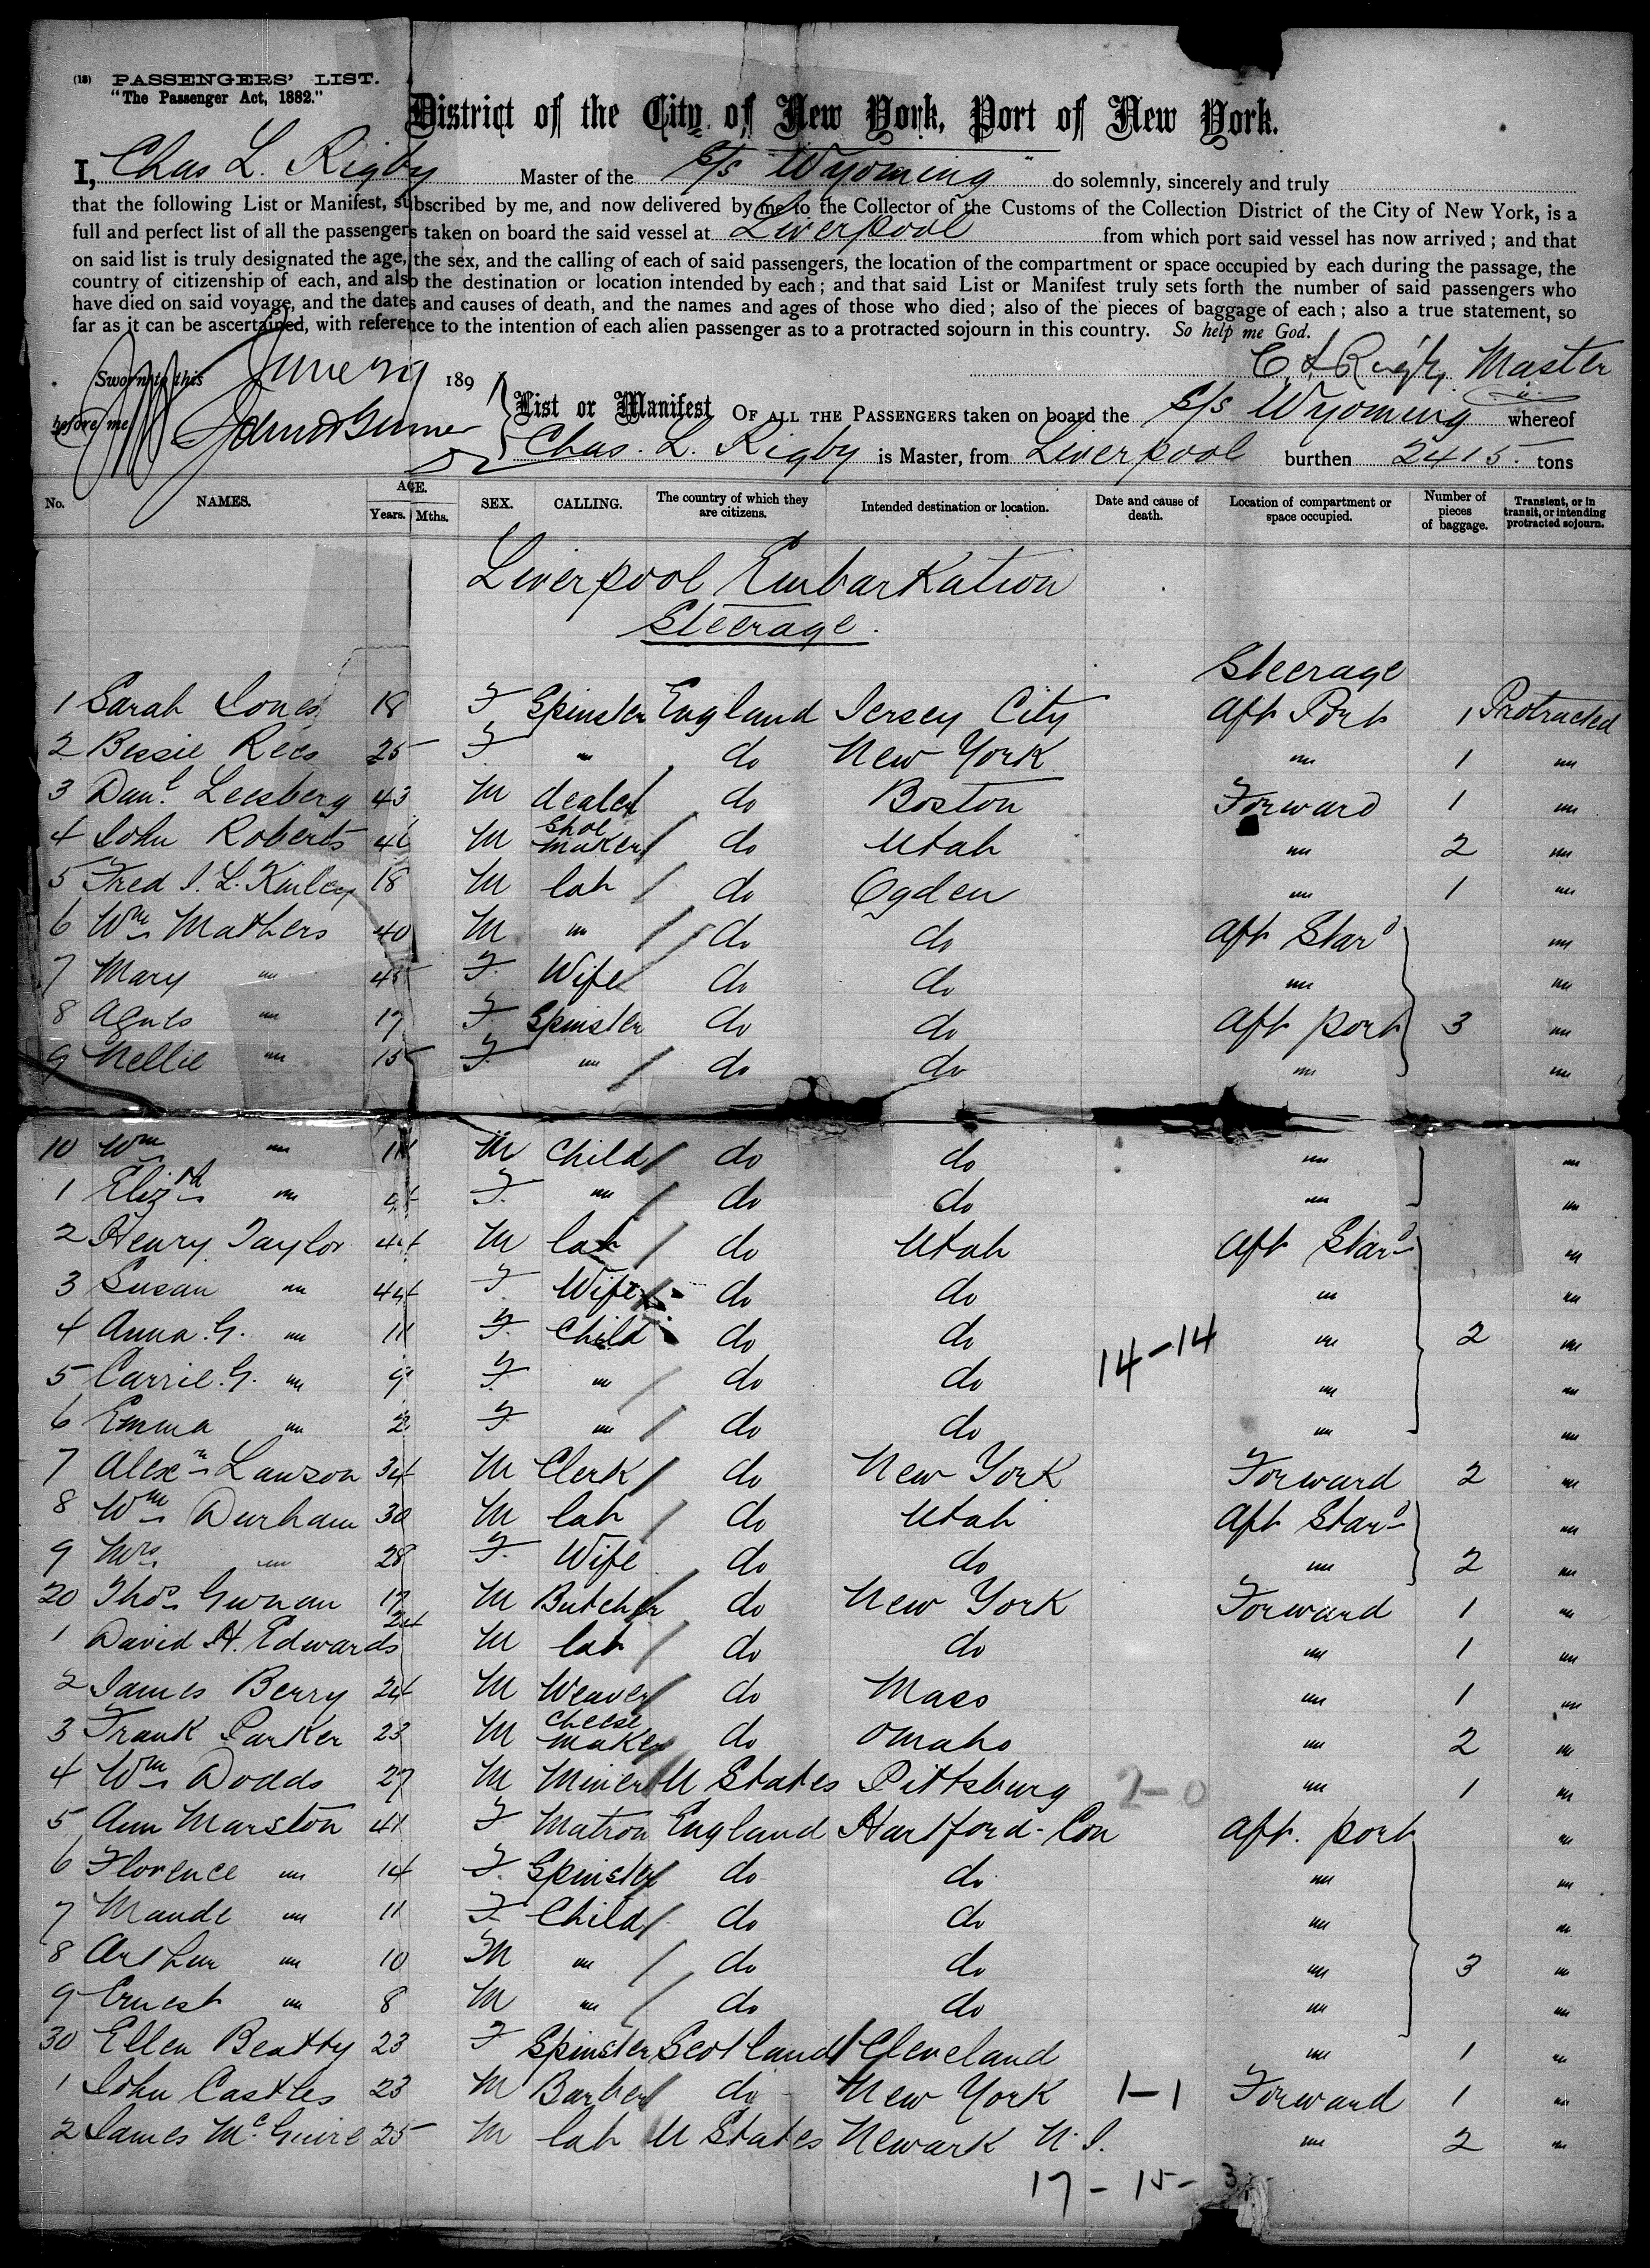 (18) PASSENGERS' LIST.
"The Passenger Act, 1882."
District of the City of New York, Port of New York.
I, Chas L. Rigby Master of the s/s "Wyoming" do solemnly, sincerely and truly
that the following List or Manifest, subscribed by me, and now delivered by me to the Collector of the Customs of the Collection District of the City of New York, is a
full and perfect list of all the passengers taken on board the said vessel at Liverpool from which port said vessel has now arrived; and that
on said list is truly designated the age, the sex, and the calling of each of said passengers, the location of the compartment or space occupied by each during the passage, the
country of citizenship of each, and also the destination or location intended by each; and that said List or Manifest truly sets forth the number of said passengers who
have died on said voyage, and the dates and causes of death, and the names and ages of those who died; also of the pieces of baggage of each; also a true statement, so
far as it can be ascertained, with reference to the intention of each alien passenger as to a protracted sojourn in this country. So help me God.
C L Rigby Master
Sworn to this June 189
before me
List or Manifest OF ALL THE PASSENGERS taken on board the s/s Wyoming whereof
Chas. L. Rigby is Master, from Liverpool burthen 2415 tons
No. NAMES. AGE. Years. Mths. SEX. CALLING. The country of which they are citizens. Intended destination or location. Date and cause of death. Location of compartment or space occupied. Number of pieces of baggage. Transient, or in transit, or intending protracted sojourn.
Liverpool Embarkation
Steerage.
Steerage
1 Sarah Jones 18 F Spinster England Jersey City Aft Port 1 Protracted
2 Bessie Rees 25 F " do New York " 1 "
3 Danl. Leesberg 43 M dealer do Boston Forward 1 "
4 John Roberts 46 M Shoe maker do Utah " 2 "
5 Fred J. L. 18 M lab do Ogden " 1 "
6 Wm Mathers 40 M " do do Aft Stard "
7 Mary " 45 F Wife do do " "
8 Agnes " 17 F Spinster do do Aft port 3 "
9 Nellie " 15 F " do do " "
10 Wm " 11 M Child do do " "
1 Elizth " 9 F " do do " "
2 Henry Taylor 44 M lab do Utah Aft Stard "
3 Susan " 44 F Wife do do " "
4 Anna G. " 11 F Child do do 14-14 " 2 "
5 Carrie G. " 9 F " do do " "
6 Emma " 2 F " do do " "
7 Alexr Lawson 34 M Clerk do New York Forward 2 "
8 Wm Durham 30 M lab do Utah Aft Stard "
9 Mrs " 28 F Wife do do " 2 "
20 Thos 17 M Butcher do New York Forward 1 "
1 David H. Edwards 24 M lab do do " 1 "
2 James Berry 24 M Weaver do Mass " 1 "
3 Frank Parker 23 M Cheese maker do Omaha " 2 "
4 Wm Dodds 27 M Miner U States Pittsburg 2-0 " 1 "
5 Ann Marston 41 F Matron England Hartford-Con Aft. port "
6 Florence " 14 F Spinster do do " "
7 Maude " 11 F Child do do " "
8 Arthur " 10 M " do do " 3 "
9 Ernest " 8 M " do do " "
30 Ellen Beatty 23 F Spinster Scotland Cleveland " 1 "
1 John Castles 23 M Barber do New York 1-1 Forward 1 "
2 James McGuire 25 M lab U States Newark N.J. " 2 "
17-15-3